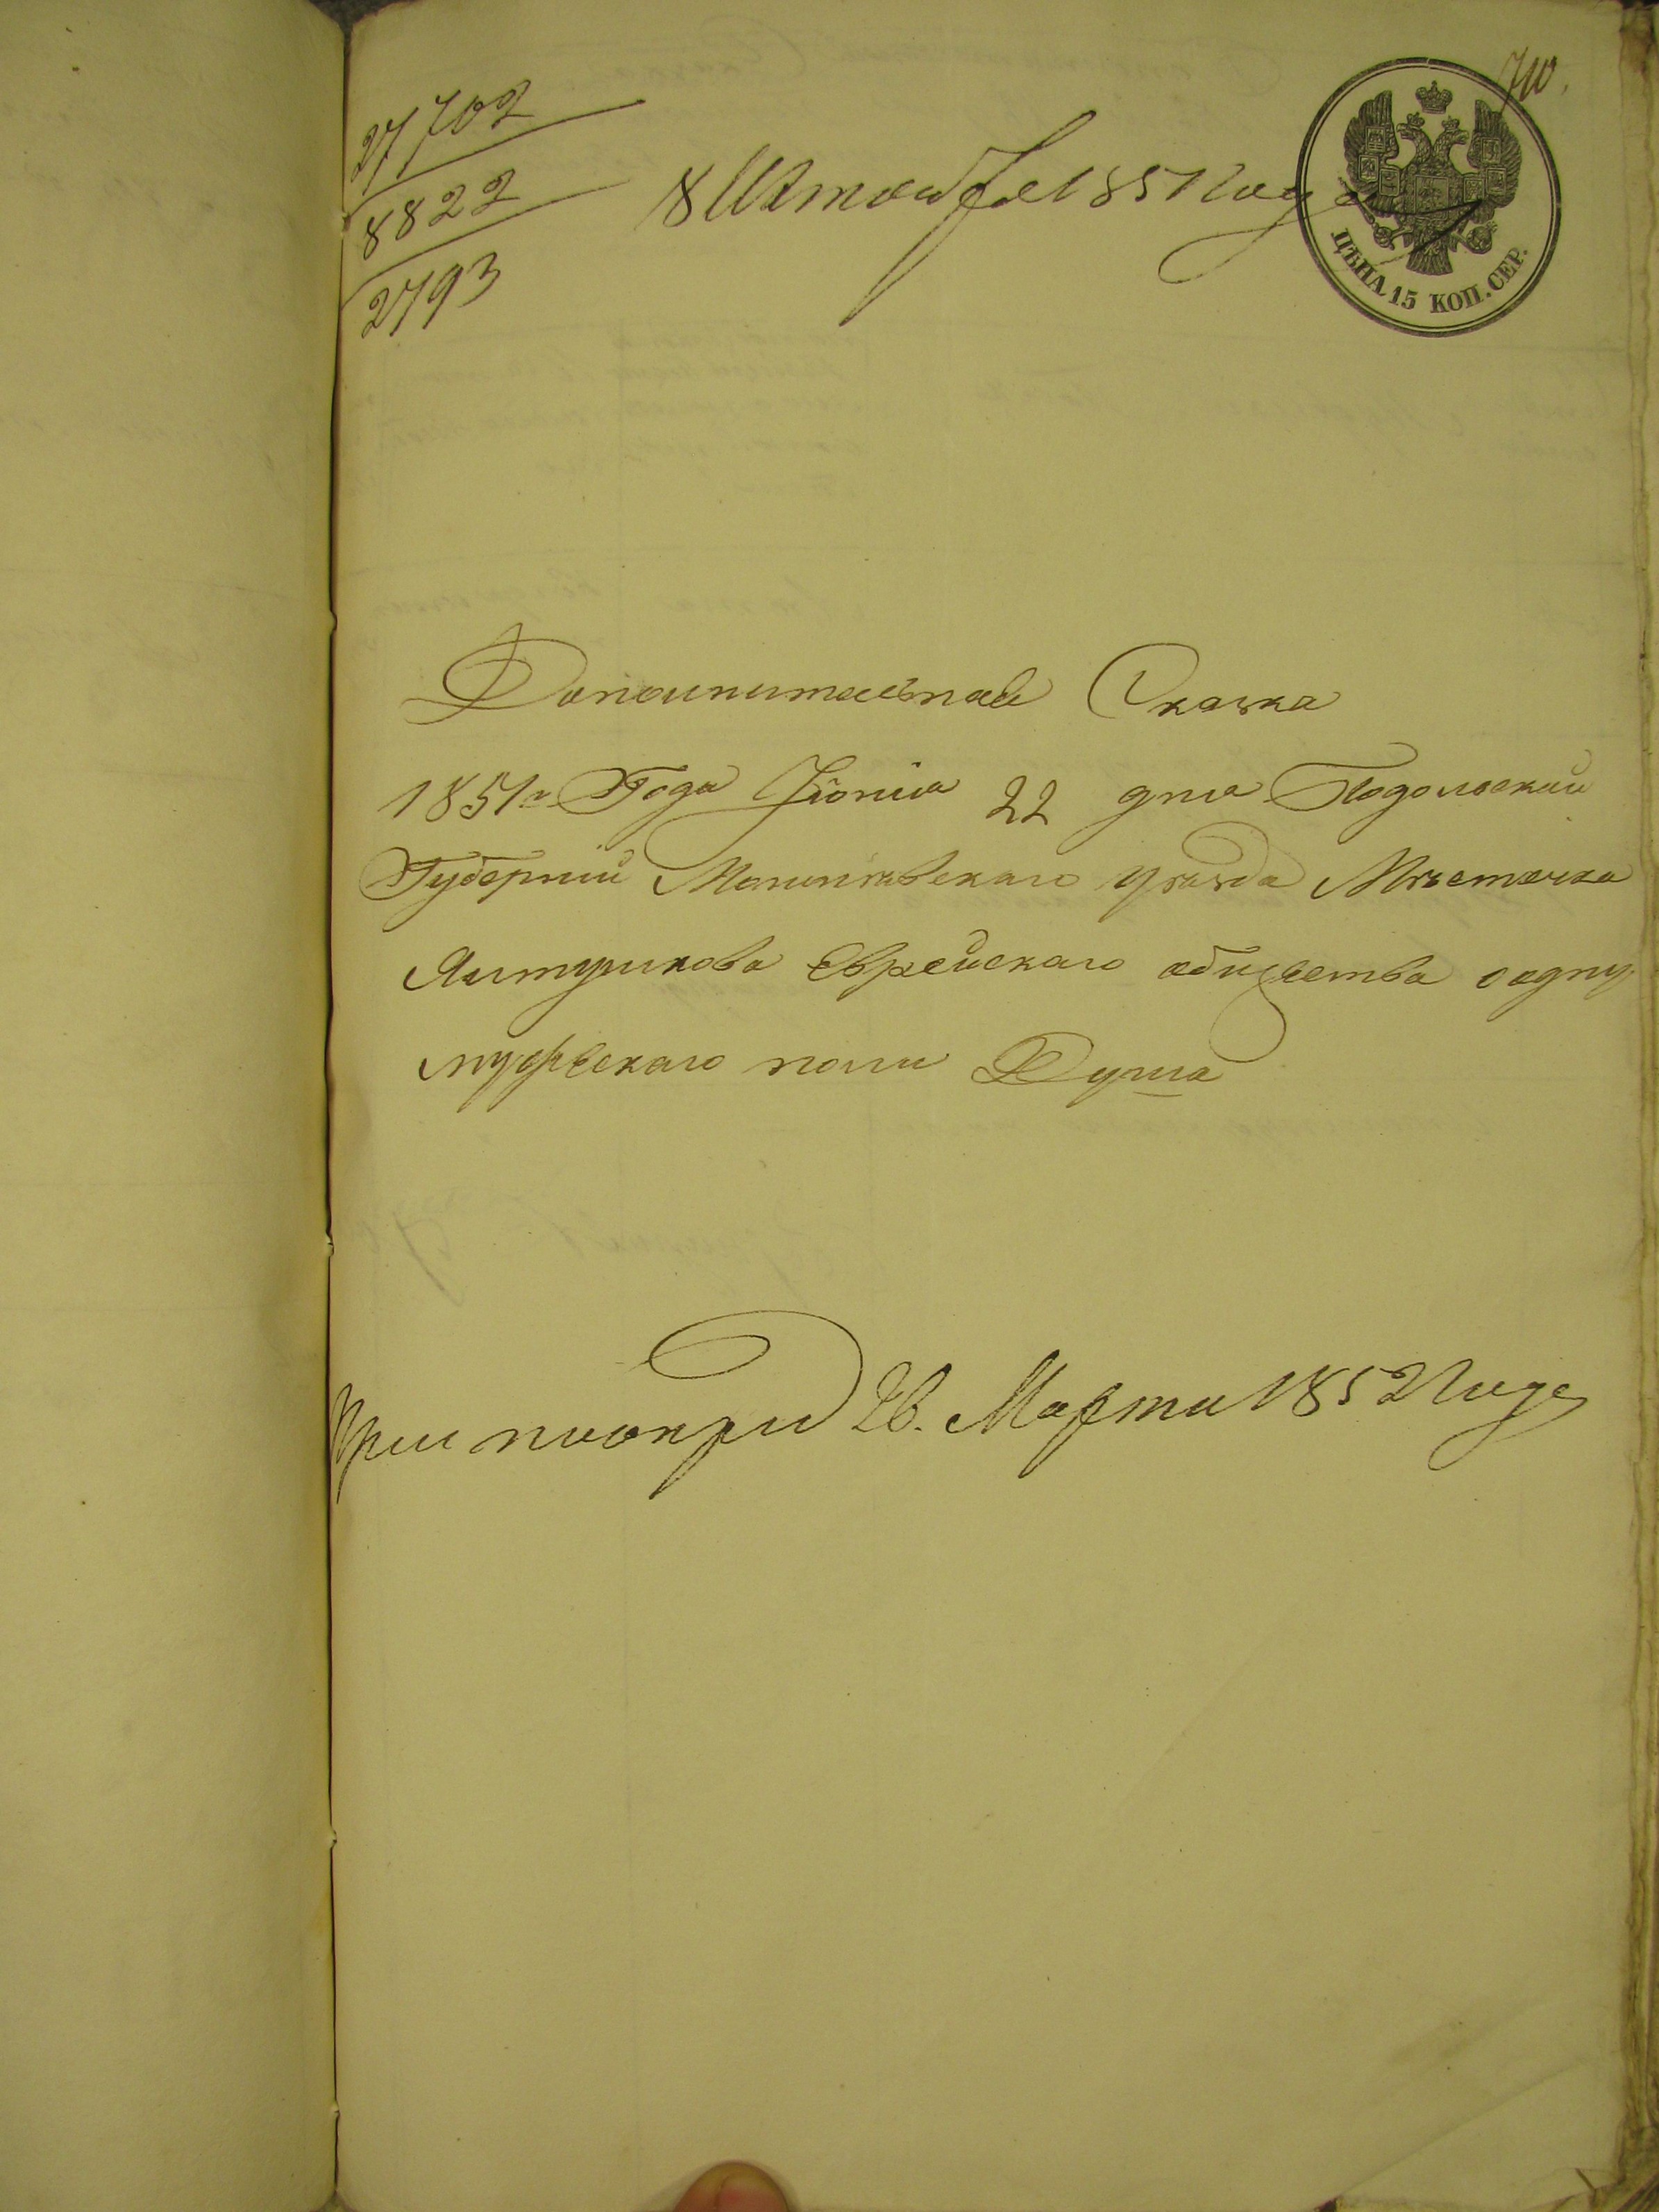 710.
27702
8822
2793
8 Октября 1851 года
ЦѢНА 15 КОП. СЕР.
Дополнительная Сказка
1851го Года Іюнія 22 дня Подольской
Губерніи Могилевскаго уѣзда Мѣстечка
Ялтушкова Еврейскаго общества о одну
мужескаго пола Душа
26. Марта 1852 года